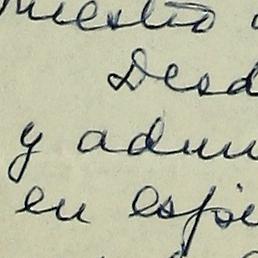 nuestro
Desd
y admi
en espe